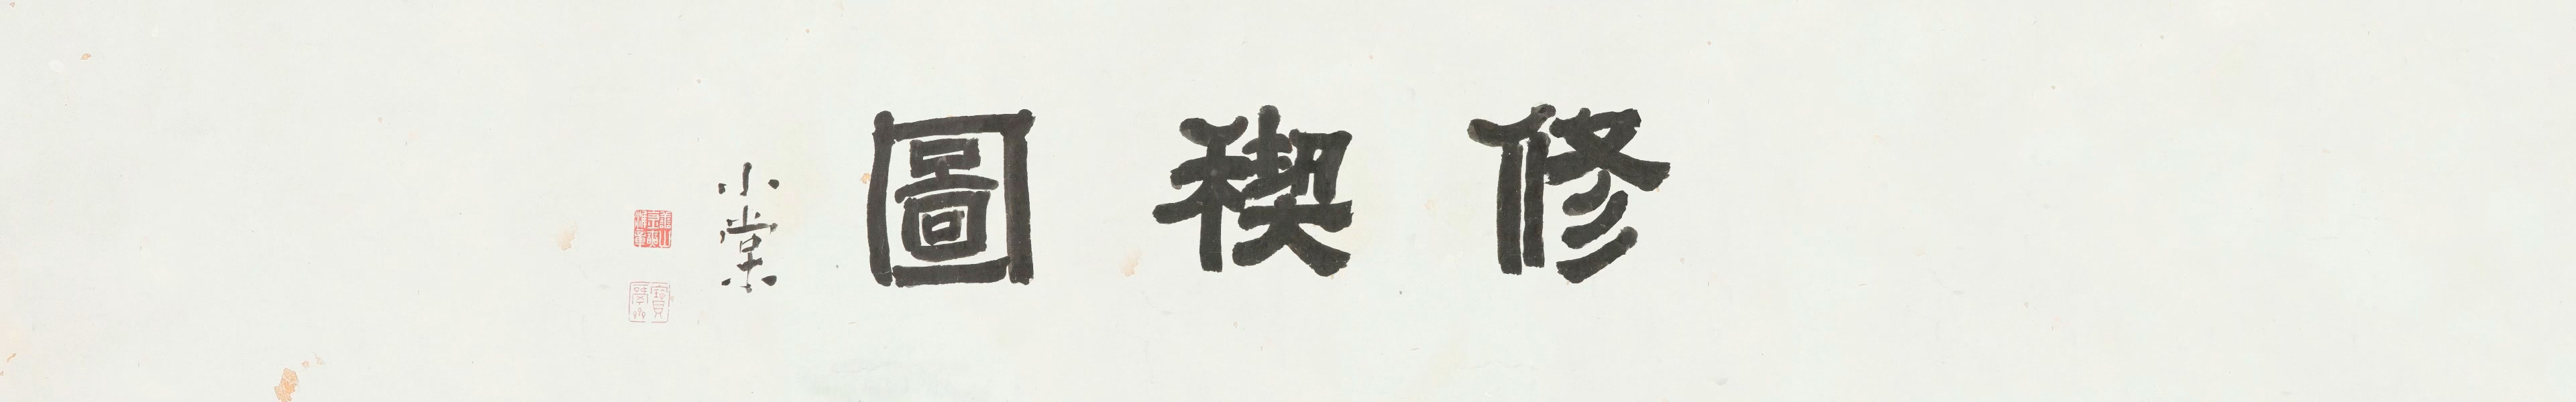 修稧圖
小棠